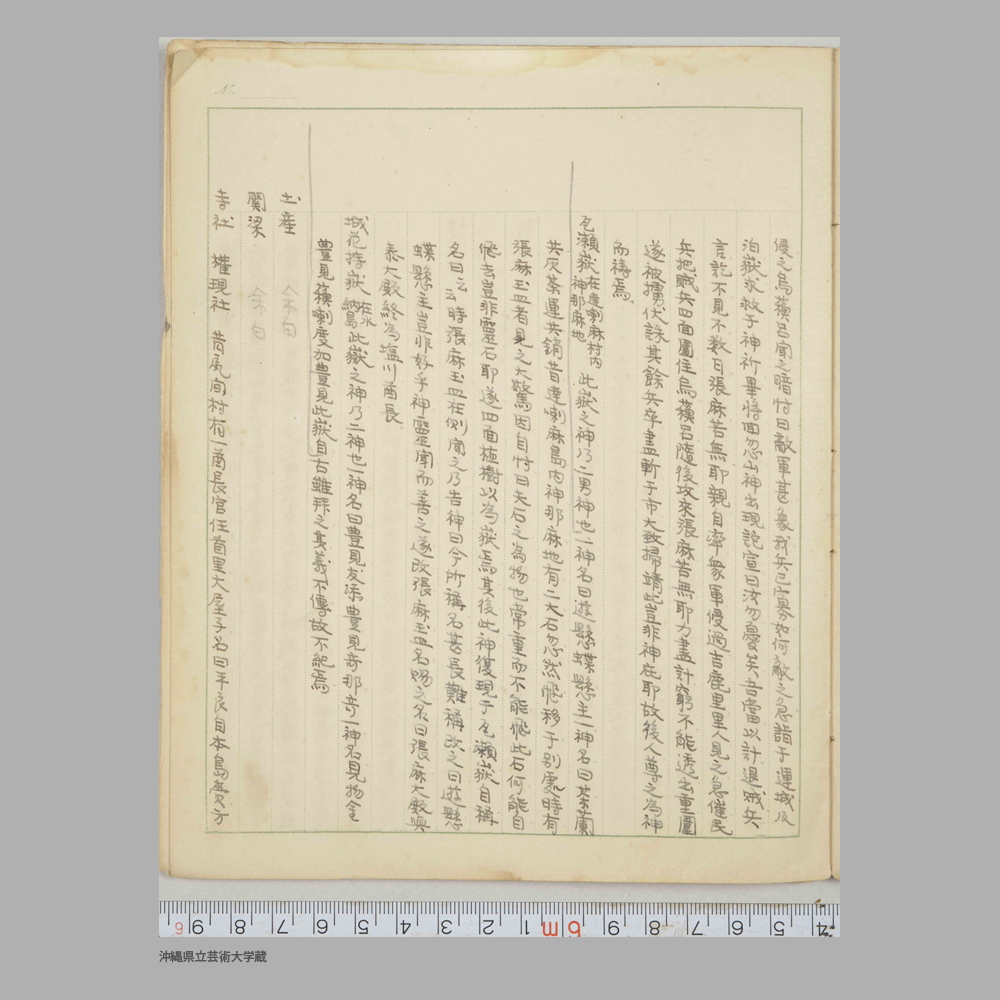 侵之烏蘋呂聞之暗忖曰敵軍甚衆我兵已寡如何敵之急詣于運城及
泊嶽求救于神祈畢将回忽山神出現説宣曰汝勿憂矣吾當以計退賊兵
言訖不見不数日張麻苦無耶親自率衆軍侵過吉鹿里里人見之急催民
兵把賊兵四面圍住烏蘋呂隨後攻来張麻苦無耶力盡計窮不能透出重圍
遂被擒伏誅其餘兵卒盡斬于市大致掃靖此豈非神在耶故後人尊之為神
而祷焉
瓦瀬嶽在達喇麻村内神那麻地 此嶽之神乃二男神也一神名曰遊懸蝶懸主一神名曰茶蘭
共灰茶運共銷昔達喇麻島内神那麻地有二大石忽然飛移于別處時有
張麻玉皿者見之大驚因自忖曰夫石之為物也常重而不能飛此石何能自
飛去豈非靈石耶遂四面植樹以為嶽焉其後此神復現于瓦瀬嶽自稱
名曰云云時張麻玉皿在側聞之乃告神曰今所稱名甚長難稱改之曰遊懸
蝶懸主豈非好乎神靈聞而善之遂改張麻玉皿名賜之名曰張麻大殿與
泰大殿終為塩川酋長
城花持嶽在水納島 此嶽之神乃二神也一神名曰豊見友添豊見奇那奇一神名見物金
豊見蘋喇度加豊見此嶽自古雖拜之其義不傳故不紀焉
土産 余白
関梁 余白
寺社 權現社 昔夙間村有一酋長官任首里大屋子名曰平良自本島貴方